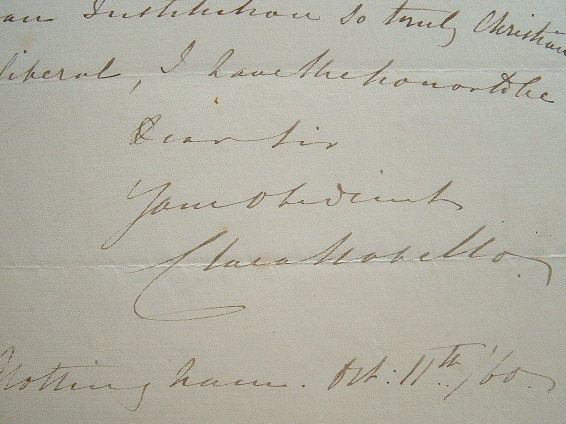 an Institution so truly Christian
liberal, I have the honor to be
Dear Sir
Your Obedient
Clara Novello.
Nottingham. Oct: 11th/60.